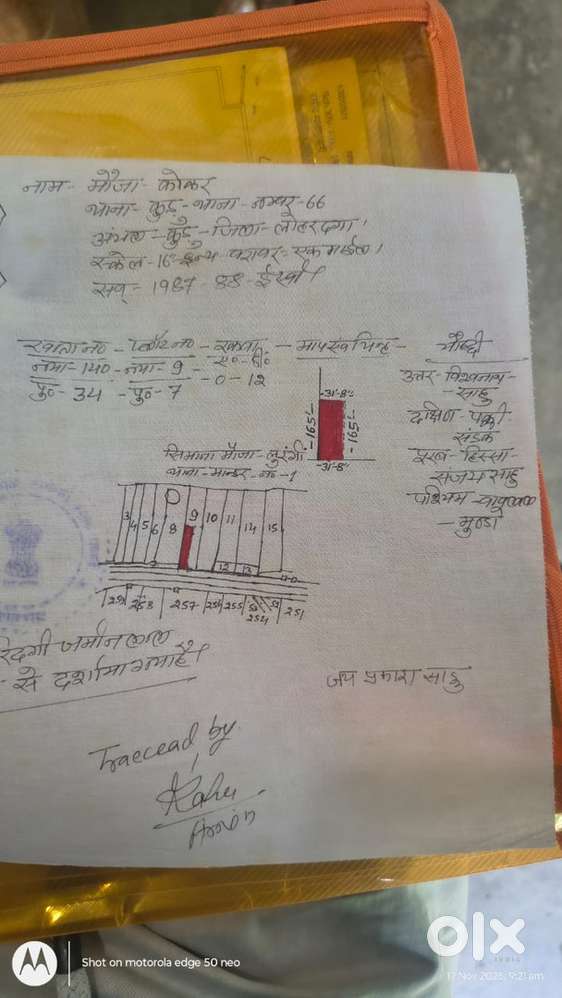 नाम - मौजा - कोकर
थाना - कुडू - थाना - नम्बर - 66
अंचल - कुडू - जिला - लोहरदगा।
स्केल - 16" इन्च बराबर - एक माईल।
सन् - 1987 - 88 - ईस्वी।
खाता नं० - प्लौट नं० - रकवा - मापसव चिन्ह - चौहद्दी
नया - 140 - नया - 9 - ए० - डी०
पु० - 34 - पु० - 7 - 0 - 12
-31'-8"-
-165'-
-165'-
-31'-8"-
उत्तर - विश्वनाथ -
साहु
दक्षिण - पक्की
संडक
पूरब - हिस्सा -
संजय साहु
पश्चिम
- मुण्डा
सिमाना मौजा - लुरंगी
थाना - मान्डर - नं० - 1
3 4 5 6 8 9 10 11 14 15
7 12 13
259 258 257 256 255 254 251
जमीन लाल
से दर्शाया गया है।
जय प्रकाश साहु
Traecead by
Amin
Shot on motorola edge 50 neo
olx
17 Nov 2025, 9:21 am